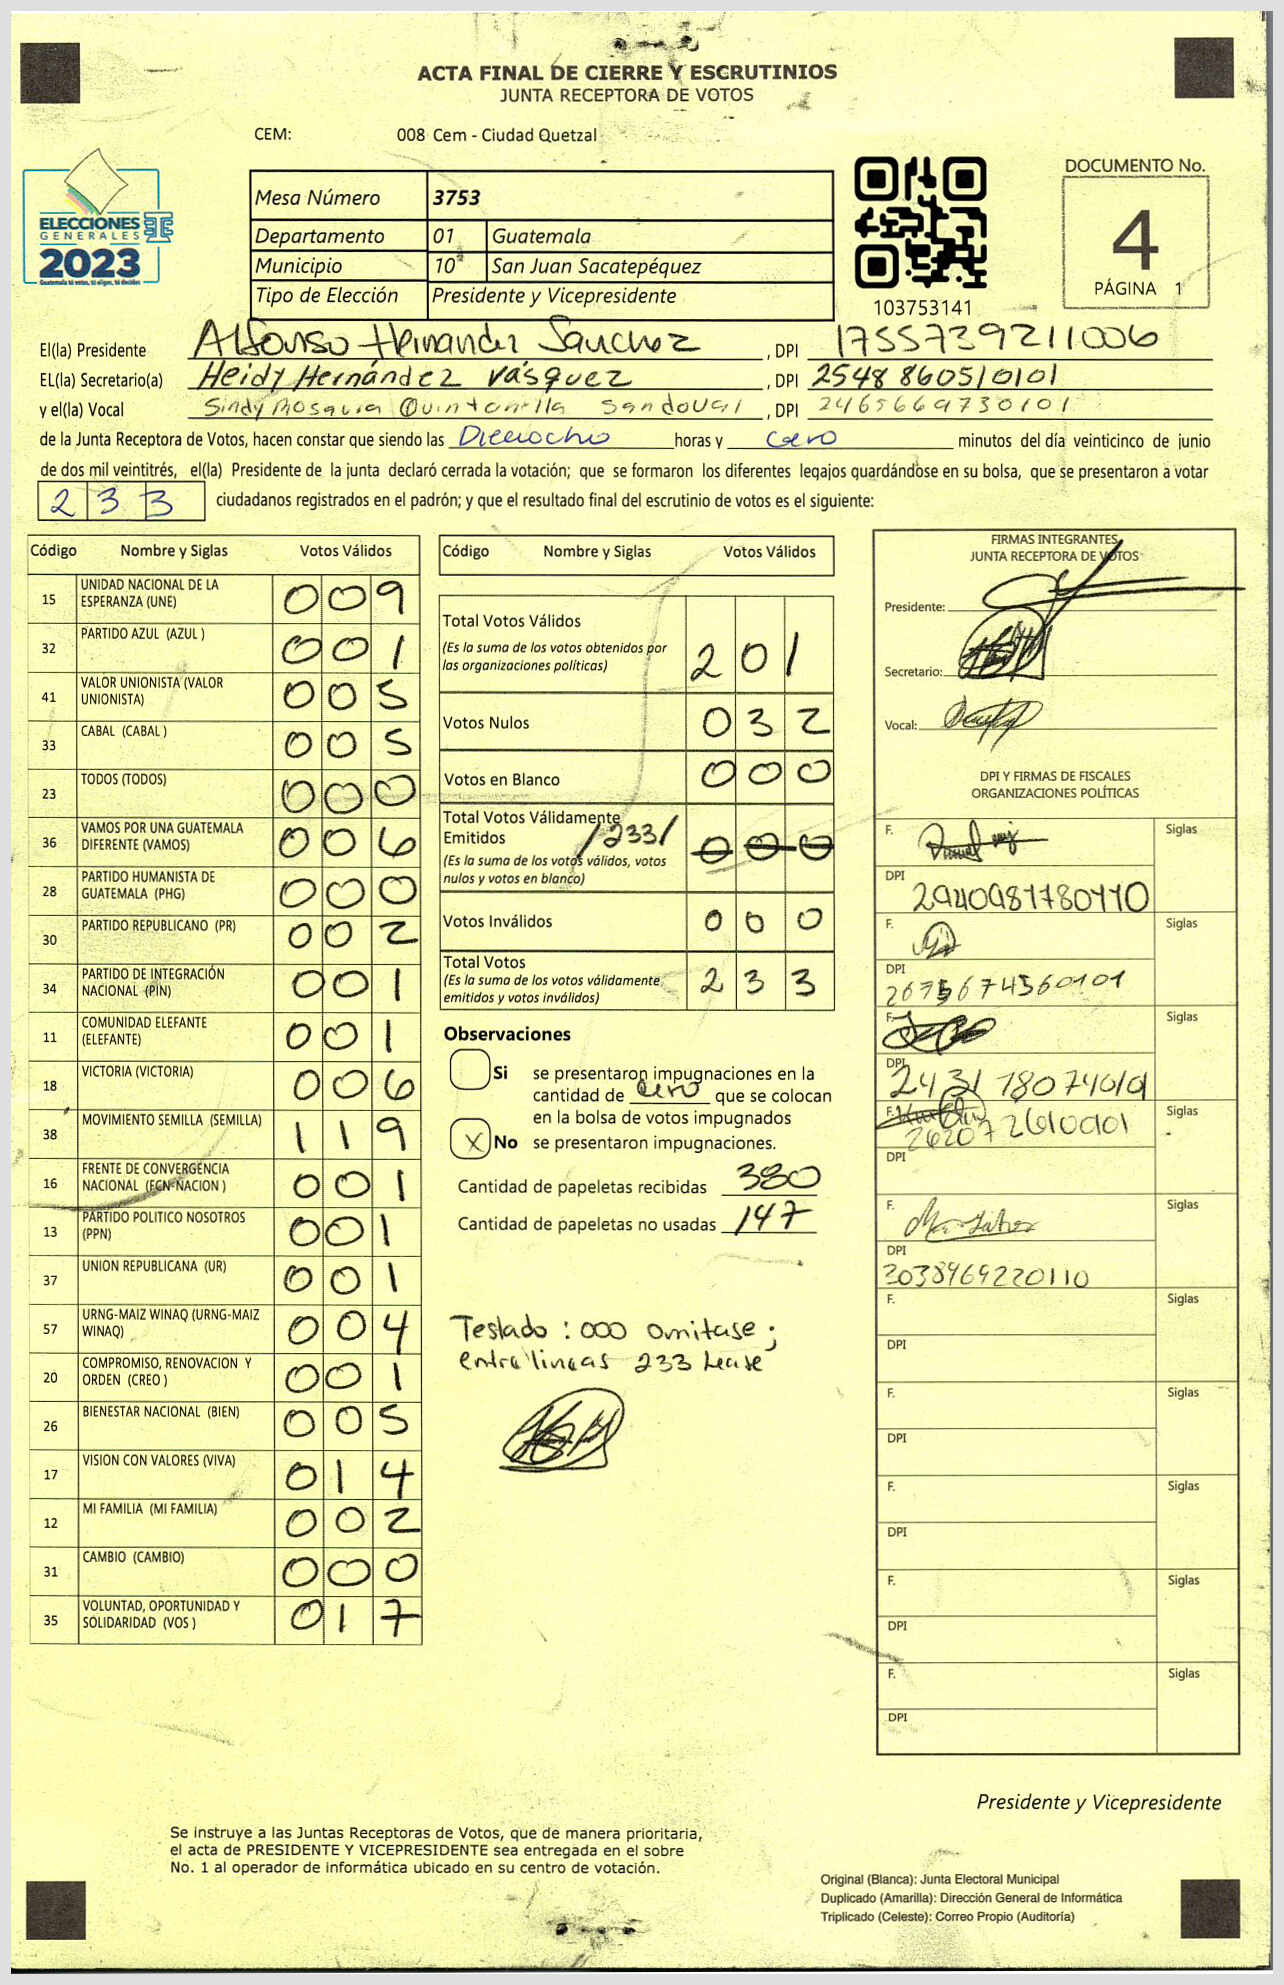 ACTA FINAL DE CIERRE Y ESCRUTINIOS
JUNTA RECEPTORA DE VOTOS
CEM: 008 Cem - Ciudad Quetzal
ELECCIONES
GENERALES
2023
Guatemala tú votas, tú eliges, tú decides
Mesa Número 3753
Departamento 01 Guatemala
Municipio 10 San Juan Sacatepéquez
Tipo de Elección Presidente y Vicepresidente
103753141
DOCUMENTO No.
4
PÁGINA 1
El(la) Presidente Alfonso Hernandez Sanchez, DPI 1755739211006
EL(la) Secretario(a) Heidy Hernández Vásquez, DPI 2548 86051 0101
y el(la) Vocal Sindy Rosaura Quintanilla Sandoval, DPI 2465669730101
de la Junta Receptora de Votos, hacen constar que siendo las Dieciocho horas y cero minutos del día veinticinco de junio
de dos mil veintitrés, el(la) Presidente de la junta declaró cerrada la votación; que se formaron los diferentes legajos guardándose en su bolsa, que se presentaron a votar
233 ciudadanos registrados en el padrón; y que el resultado final del escrutinio de votos es el siguiente:
Código Nombre y Siglas Votos Válidos
15 UNIDAD NACIONAL DE LA ESPERANZA (UNE) 009
32 PARTIDO AZUL (AZUL ) 001
41 VALOR UNIONISTA (VALOR UNIONISTA) 005
33 CABAL (CABAL ) 005
23 TODOS (TODOS) 000
36 VAMOS POR UNA GUATEMALA DIFERENTE (VAMOS) 006
28 PARTIDO HUMANISTA DE GUATEMALA (PHG) 000
30 PARTIDO REPUBLICANO (PR) 002
34 PARTIDO DE INTEGRACIÓN NACIONAL (PIN) 001
11 COMUNIDAD ELEFANTE (ELEFANTE) 001
18 VICTORIA (VICTORIA) 006
38 MOVIMIENTO SEMILLA (SEMILLA) 119
16 FRENTE DE CONVERGENCIA NACIONAL (FCN-NACION ) 001
13 PARTIDO POLITICO NOSOTROS (PPN) 001
37 UNION REPUBLICANA (UR) 001
57 URNG-MAIZ WINAQ (URNG-MAIZ WINAQ) 004
20 COMPROMISO, RENOVACION Y ORDEN (CREO ) 001
26 BIENESTAR NACIONAL (BIEN) 005
17 VISION CON VALORES (VIVA) 014
12 MI FAMILIA (MI FAMILIA) 002
31 CAMBIO (CAMBIO) 000
35 VOLUNTAD, OPORTUNIDAD Y SOLIDARIDAD (VOS ) 017
Código Nombre y Siglas Votos Válidos
Total Votos Válidos 201
(Es la suma de los votos obtenidos por
las organizaciones políticas)
Votos Nulos 032
Votos en Blanco 000
Total Votos Válidamente
Emitidos /233/ 000
(Es la suma de los votos válidos, votos
nulos y votos en blanco)
Votos Inválidos 000
Total Votos 233
(Es la suma de los votos válidamente
emitidos y votos inválidos)
Observaciones
Si se presentaron impugnaciones en la
cantidad de cero que se colocan
en la bolsa de votos impugnados
X No se presentaron impugnaciones.
Cantidad de papeletas recibidas 380
Cantidad de papeletas no usadas 147
Testado : 000 omitase ;
entre lineas 233 Lease
FIRMAS INTEGRANTES
JUNTA RECEPTORA DE VOTOS
Presidente:
Secretario:
Vocal:
DPI Y FIRMAS DE FISCALES
ORGANIZACIONES POLÍTICAS
F. Siglas
DPI
F. Siglas
DPI
2675674560101
F. Siglas
DPI
2431 78074 0101
F. Siglas
DPI
F. Siglas
DPI
3038969220110
F. Siglas
DPI
F. Siglas
DPI
F. Siglas
DPI
F. Siglas
DPI
F. Siglas
DPI
Presidente y Vicepresidente
Se instruye a las Juntas Receptoras de Votos, que de manera prioritaria,
el acta de PRESIDENTE Y VICEPRESIDENTE sea entregada en el sobre
No. 1 al operador de informática ubicado en su centro de votación.
Original (Blanca): Junta Electoral Municipal
Duplicado (Amarilla): Dirección General de Informática
Triplicado (Celeste): Correo Propio (Auditoría)